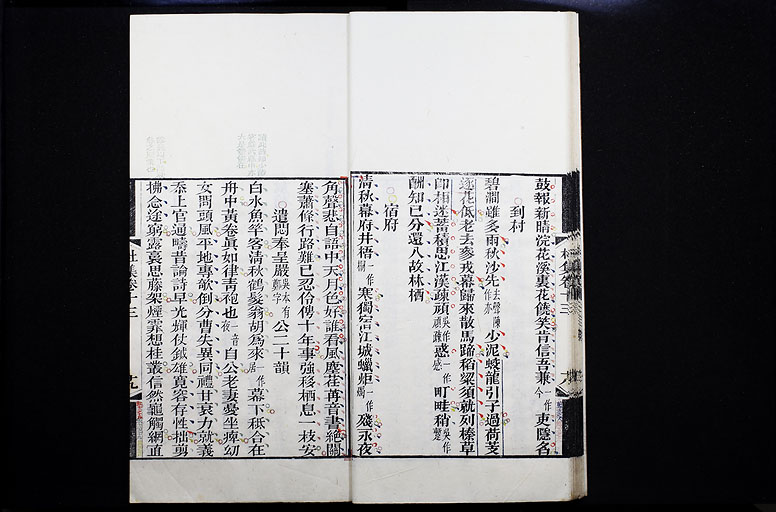 鼓報新晴浣花溪裏花饒笑肯信吾兼一作今吏隱名
到村
碧澗雖多雨秋沙先去聲陳作亦少泥蛟龍引子過荷芰
逐花低老去參戎幕歸來散馬蹄稻粱須就列榛草
即相迷蓄積思江漢疎頑吳作頑疎惑一作感町畦稍吳作暫
酬知己分還入故林栖
宿府
清秋幕府井梧一作桐寒獨宿江城蠟炬一作燭殘永夜
角聲悲自語中天月色好誰看風塵荏苒音書絕關
塞蕭條行路難已忍伶俜十年事強移栖息一枝安
遣悶奉呈嚴吳本有鄭字公二十韻
白水魚竿客清秋鶴髮翁胡爲來一作居幕下秪合在
舟中黃卷真如律青袍也音夜自公老妻憂坐痺幼
女問頭風平地專欹倒分曹失異同禮甘衰力就義
忝上官通疇昔論詩早光輝仗鉞雄寬容存性拙剪
拂念途窮露裛思藤架煙霏想桂叢信然龜觸網直
杜集卷十三
杜集卷十三